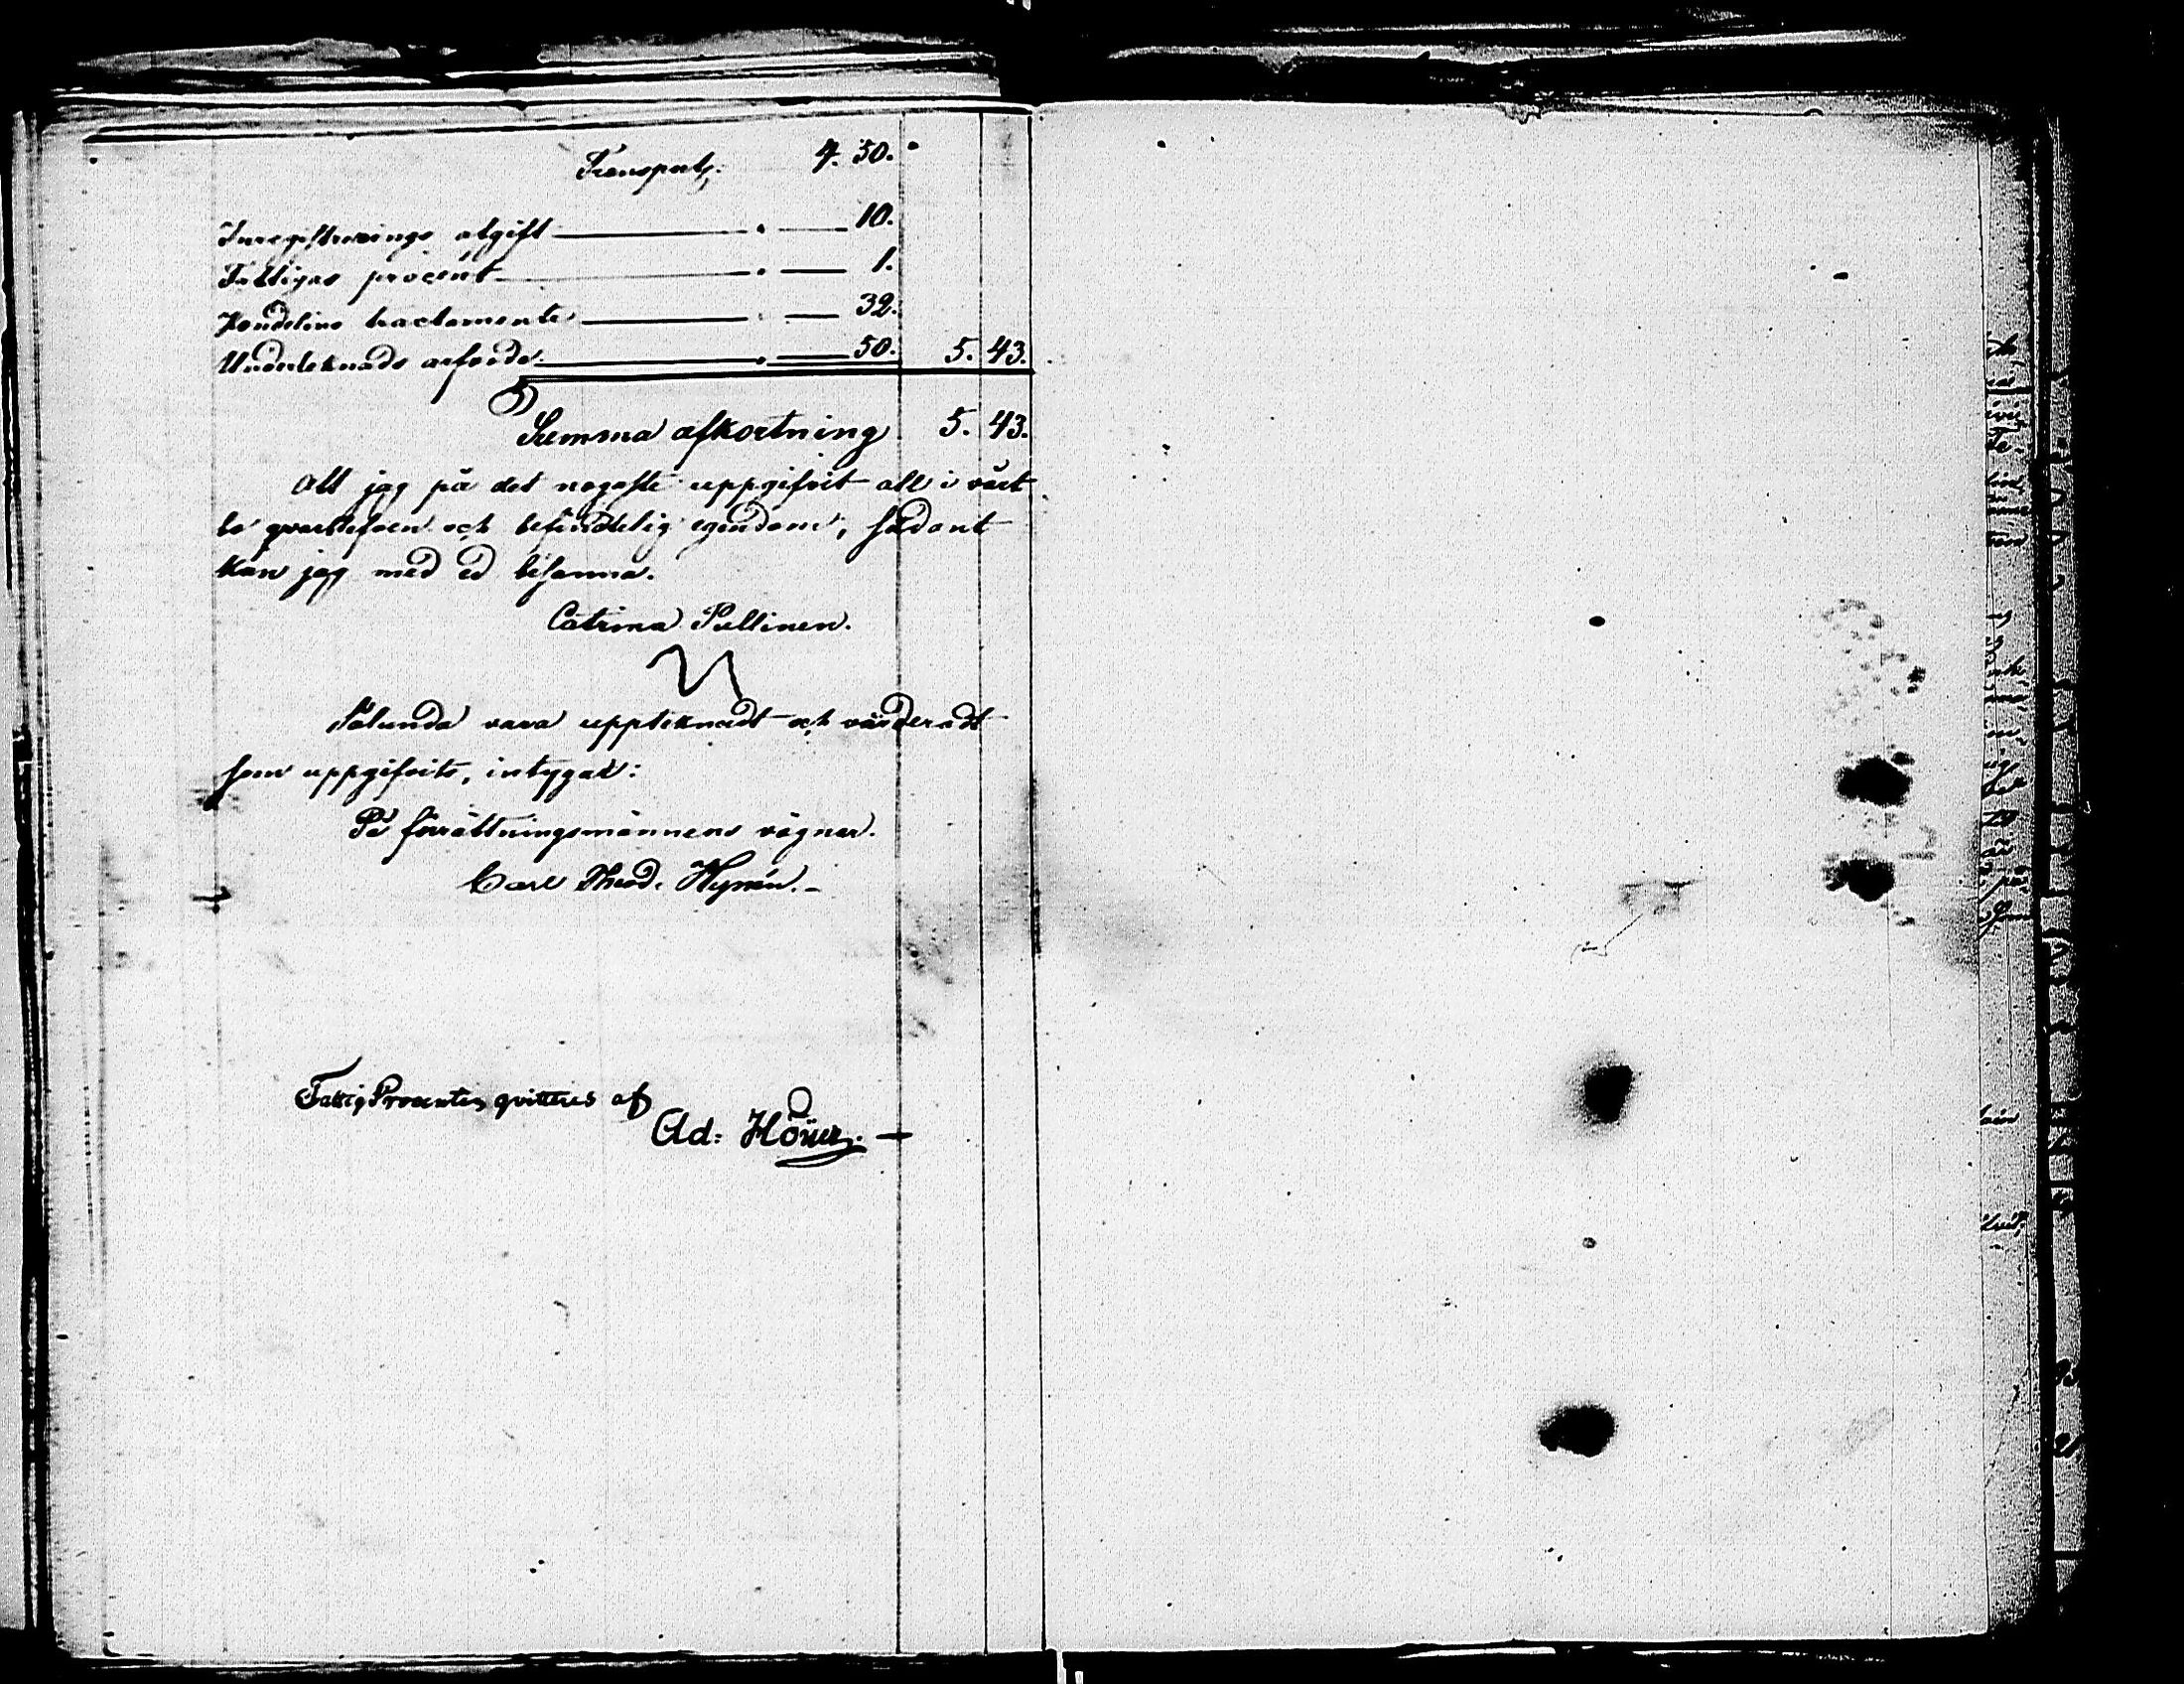 Transport: 4. 50.
Inregistrerings afgift 10.
Fattigas procent 1.
Handelins tractamente 32.
Underteknads arfvode 50. 5. 43.
Summa afkortning 5. 43.
Att jag på det nogaste uppgifvit all i vårt
bo qvarblefven och befindtelig egendom, sådant
kan jag med ed besanna.
Catrina Pullinen.
Sålunda vara upptecknadt och värderadt
som uppgifvits, intygar:
På förrättningsmännens vägnar.
Carl Theod. Hymén.
Fattig Procenten qvitteras af
Ad: